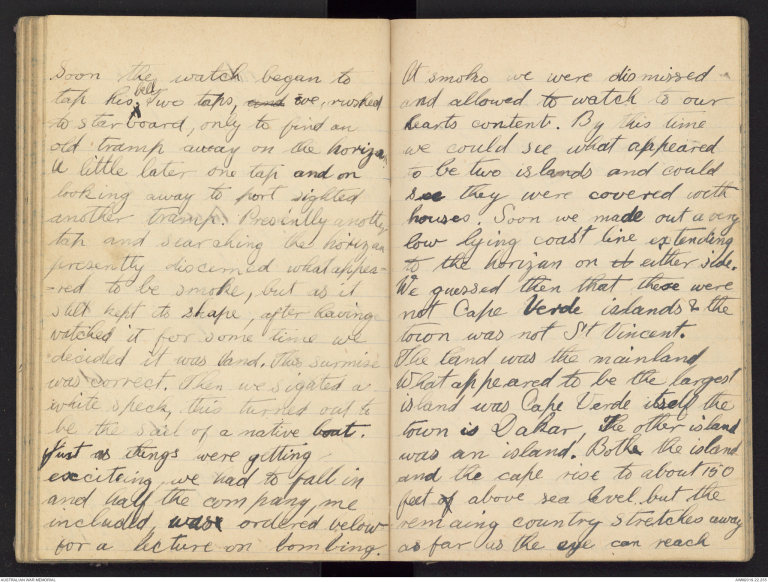 Soon the watch began to
tap his bell, two taps, and we, rushed
to starboard, only to find an
old tramp away on the horizan
A little later one tap and on
looking away to port sighted
another tramp. Presently another
tap and searching the horizan
presently discerned what appea-
-red to be smoke, but as it
still kept to shape, after having
watched it for some time we
decided it was land. This surmise
was correct. Then we sigated a
white speck, this turned out to
be the sail of a native boat.
Just as things were gitting
exciteing, we had to fall in
and half the company, me
included, were ordered below
for a lecture on bombing.
At smoko we were dismissed
and allowed to watch to our
hearts content. By this time
we could see what appeared
to be two islands and could
see they were covered with
houses. Soon we made out a very
low lying coast line extending
to the horizan on it either side.
We guessed then that these were
not Cape Verde islands & the
town was not St Vincent.
The land was the mainland
What appeared to be the largest
island was Cape Verde itself the
town is Dakar, The other island
was an island. Bothe the island
and the cape rise to about 150
feet of above sea level but the
remaing country stretches away
as far as the eye can reach
AUSTRALIAN WAR MEMORIAL